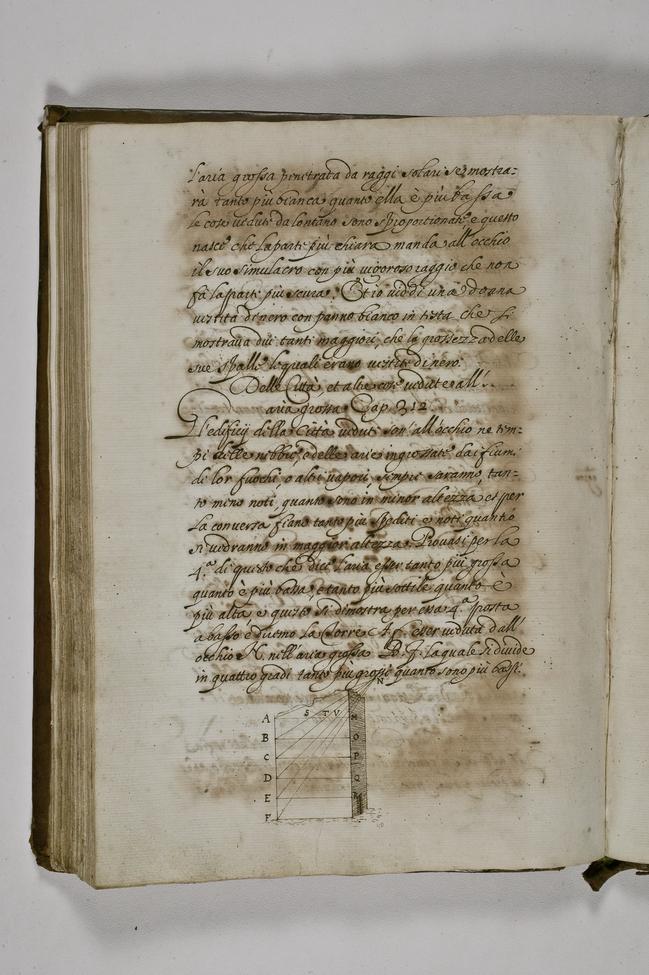 l'aria grossa penetrata da raggi solari se mostra-
rà tanto più bianca quanto ella è più bassa
le cose vedute da lontano sono sproportionate e questo
nasce che la parte più chiara manda all'occhio
il suo simulacro con più vigoroso raggio che non
fà la parte più scura. Et io viddi una donna
vestita di nero con panno bianco in testa che si
mostraua dui tanti maggiori, che la grossezza delle
sue spalle le quali erano vestite di nero.
Delle Città et altre cose vedute all'
aria grossa Cap. 312
Gl'edificij della Città veduti sott'all'occhio ne tem-
pi delle nebbie, e delle arie ingrossate da i fiumi
di lor fuochi, o altri vapori, sempre saranno, tan-
to meno noti, quanto sono in minor altezza, et per
la conversa fiano tanto più spediti e noti quanto
si vedranno in maggior altezza. Provasi per la
4.ª di questo che dice l'aria esser tanto più grossa
quanto è più bassa, e tanto più sottile quanto è
più alta, e questo si dimostra per essa 4.ª posta
a basso e diremo la Torre AF. esser veduta dall'
occhio N. nell'aria grossa B.F. la quale si divide
in quattro gradi tanto più grossi quanto sono più bassi.
N
A S T V
B O
C P
D Q
E
F